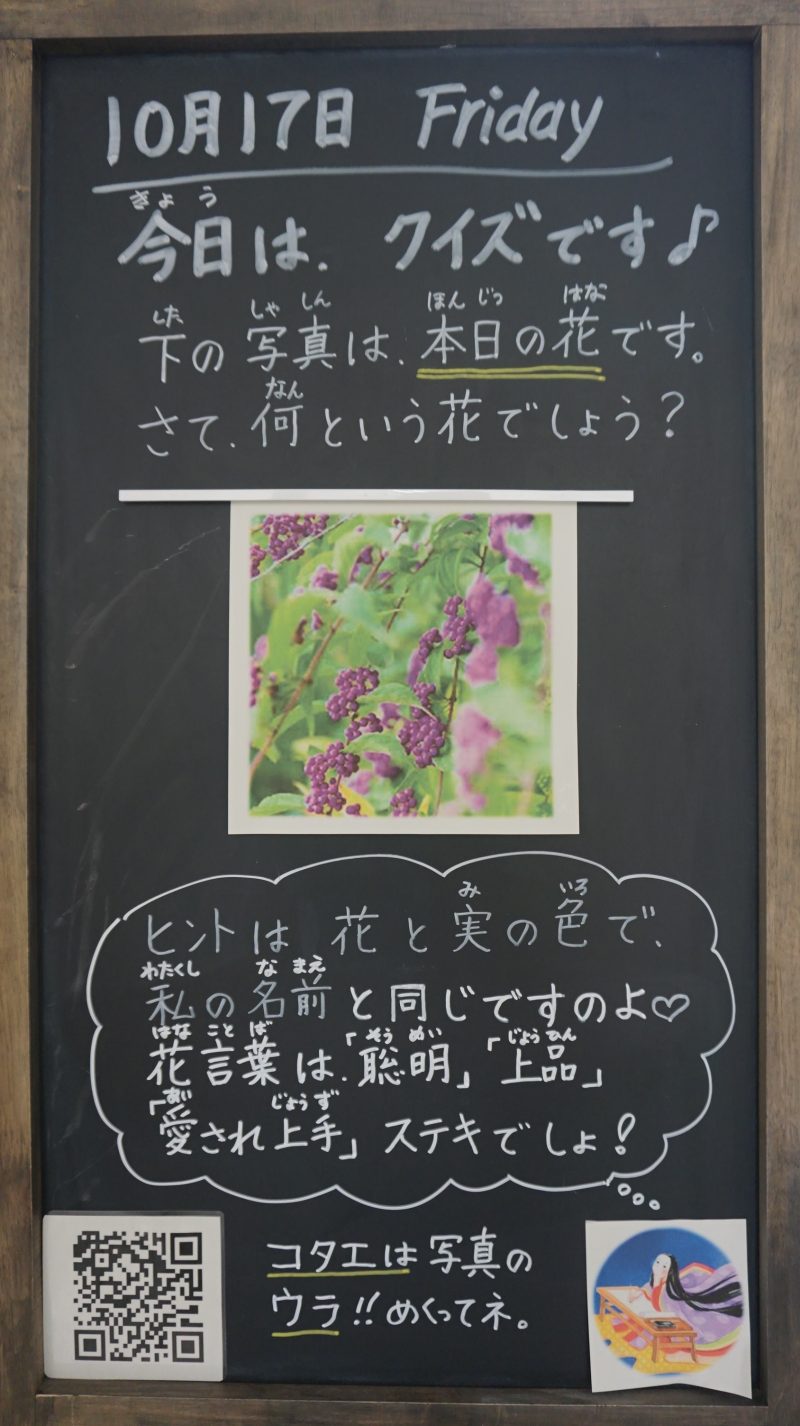 10月17日 Friday
きょう
今日は、クイズです♪
した しゃ しん ほん じつ はな
下の写真は、本日の花です。
なん
さて、何という花でしょう？
み いろ
ヒントは 花と実の色で、
わたくし な まえ
私の名前と同じですのよ♡
はな こと ば そう めい じょう ひん
花言葉は、「聡明」「上品」
あい じょう ず
「愛され上手」ステキでしょ！
コタエは写真の
ウラ!!めくってネ。